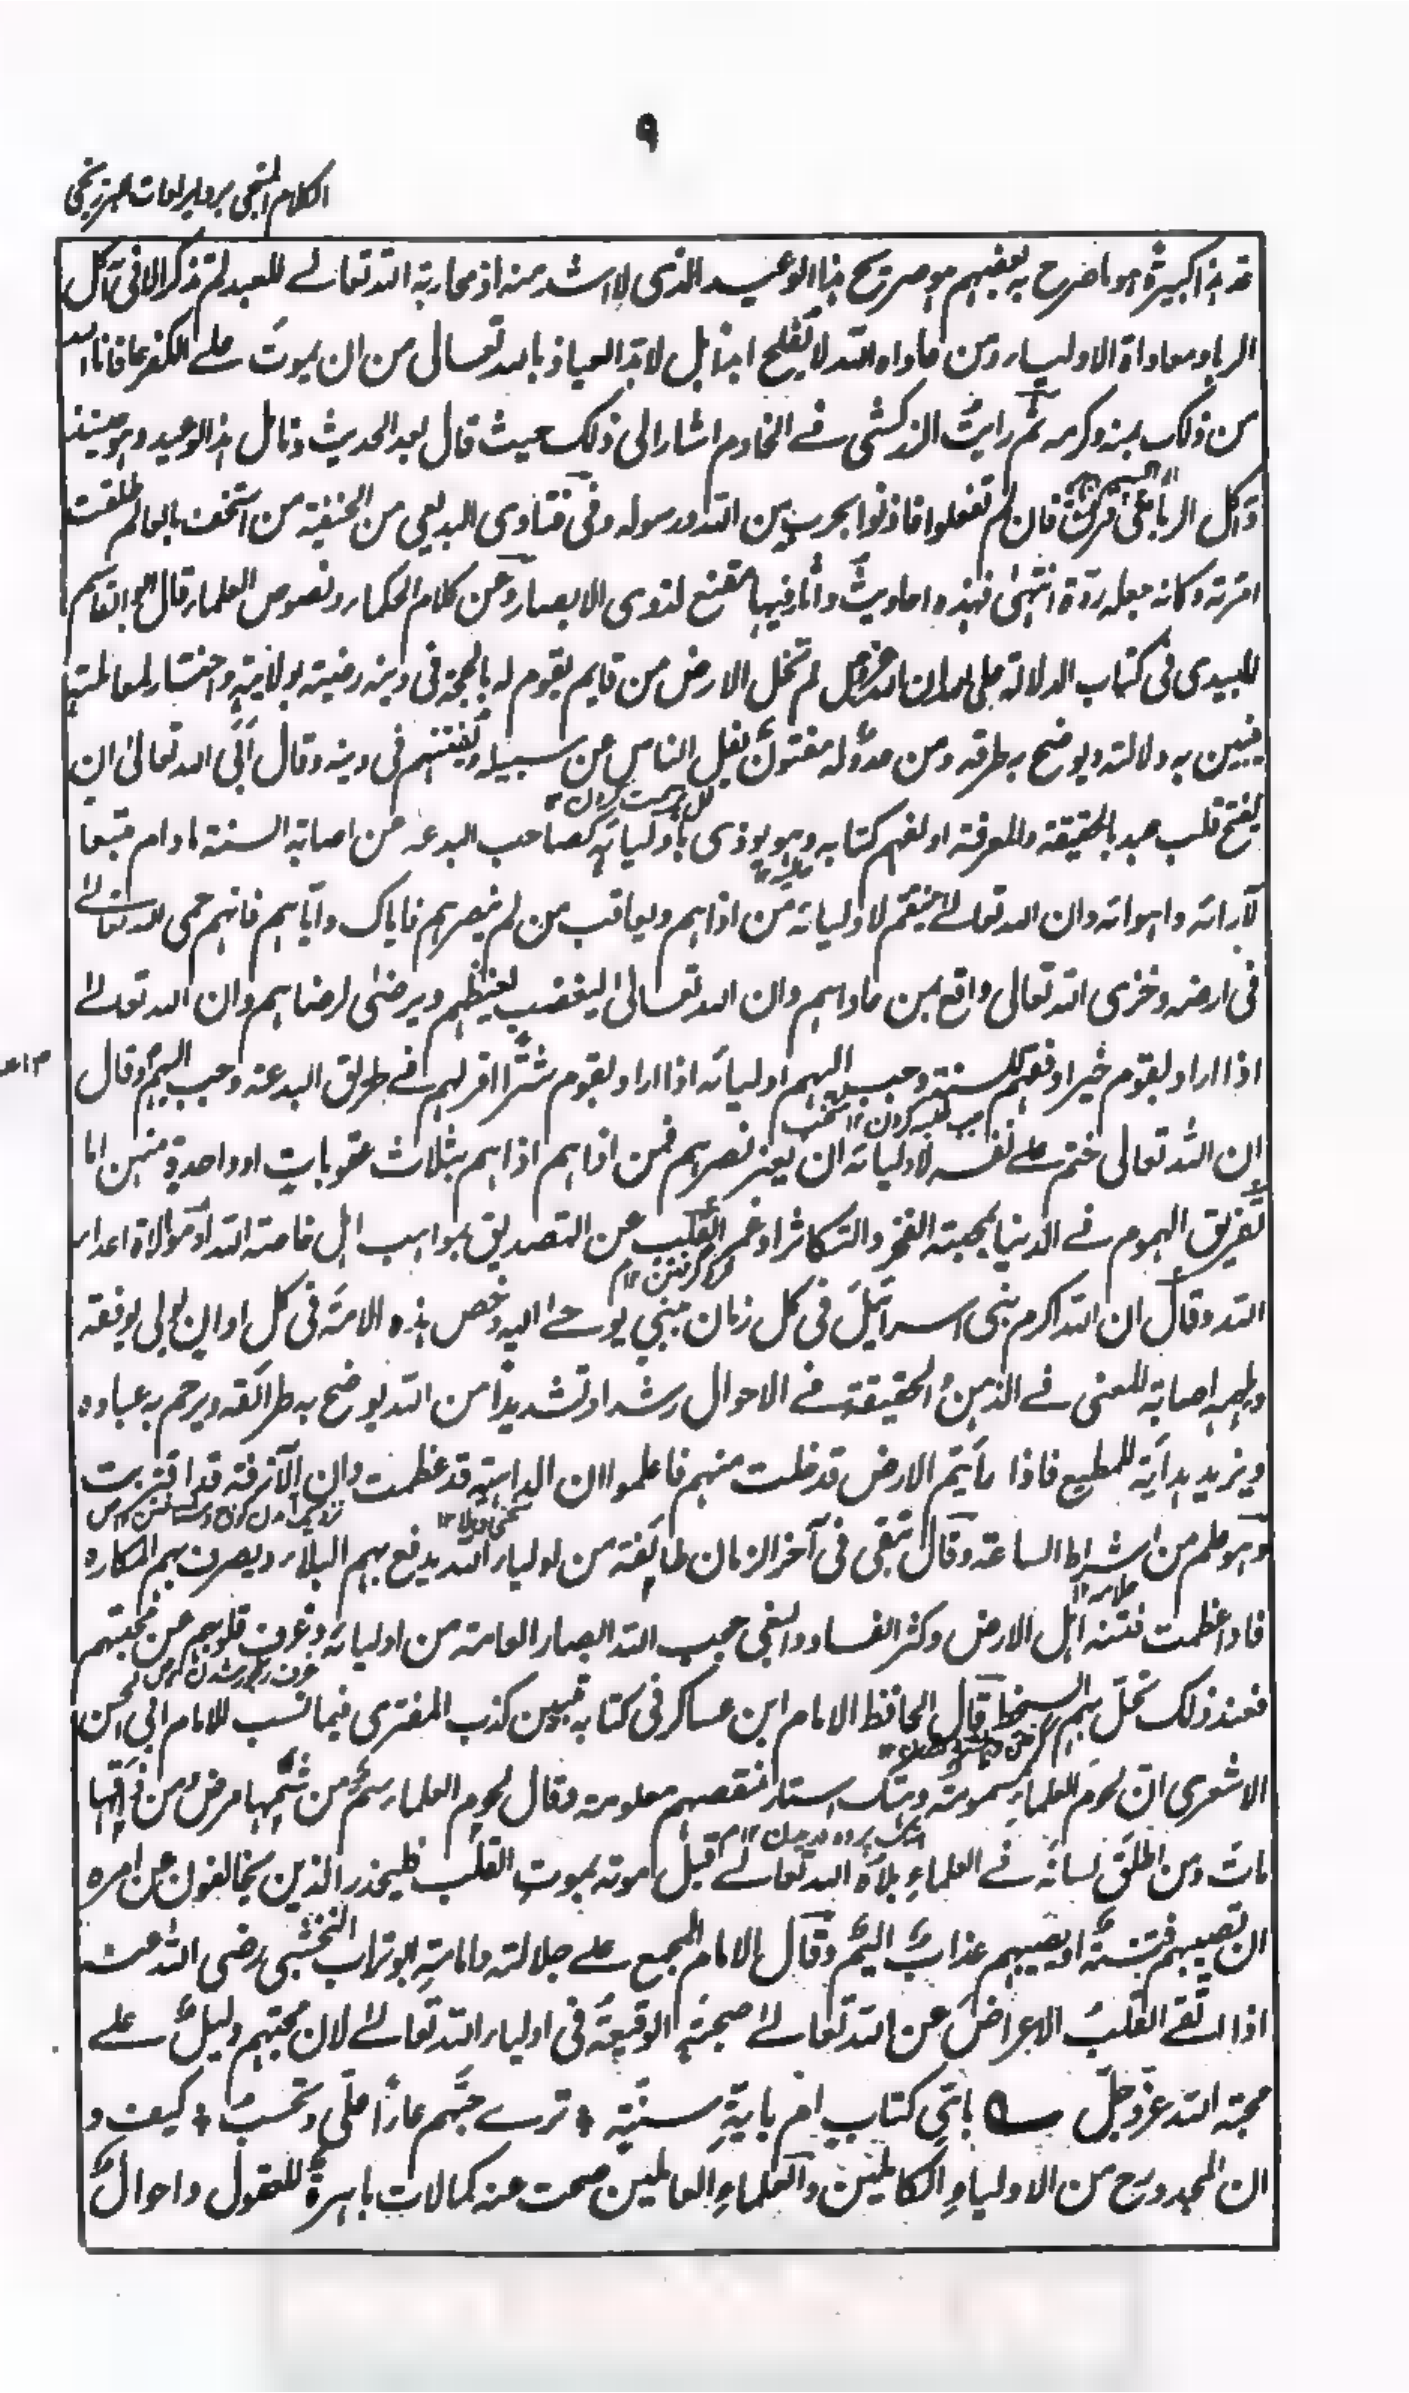 ٩
الكلام المنجى برد ايرادات البرزنجى
هذا كبيرة هو ما صرح به بعضهم وهو صريح هذا الوعيد الذى لا اشد منه اذ محاربة الله تعالے للعبد لم تذكر الا فى آكل
الربا ومعاداة الاولياء ومن عاداه الله لا يفلح ابدا بل لابد العياذ بالله تعالى من ان يموت علے الكفر عافانا الله
من ذلك بمنه وكرمه ثم رايت الزركشى فے الخادم اشار الى ذلك حيث قال بعد الحديث وتامل هذا الوعيد وهو
وآكل الربا فى قرن فان لم تفعلوا فاذنوا بحرب من الله ورسوله وفى فتاوى البديعى من الحنفية من استخف بالعالم طلقت
امرته وكانه جعله ردة انتهىٰ فهذه احاديث وآثار فيها مقنع لذوى الابصار ومن كلام الحكماء ونصوص العلماء قال ابو القاسم
للبيدى فى كتاب الدلالة على الله ان الله عزوجل لم تخل الارض من قايم يقوم له بالحجة فى دينه رضيته بولايته واختار لمعاملته
فيبين به دلالته ويوضح به طرقه ومن عدو له مفتون يضل الناس عن سبيله ويفتنهم فى دينه وقال ابى الله تعالىٰ ان
يفتح قلب عبد بالحقيقة والمعرفة اولفهم كتابه وهو يوذى باوليائه كصاحب البدعه من اصابة السنة مادام متبعا
لآرائه واهوائه وان الله تعالے ينتقم لاوليائه من اذاهم ويعاقب من لم ينصرهم فاياك واياهم فانهم حمى الله تعالے
فى ارضه وخزى الله تعالى واقع بمن عاداهم وان الله تعالىٰ ليغضب لغيظهم ويرضىٰ لرضاهم وان الله تعالےٰ
اذا اراد بقوم خيرا وفقهم للسنة وحبب اليهم اوليائه اذا اراد بقوم شرا اقر لهم فے طريق البدعة وحبب اليهم وقال
ان الله تعالى ختم علے نفسه لاوليائه ان يعز نصرهم فمن اذاهم اذاهم بثلاث عقوبات او واحدة منهن اما
تفريق الهموم فے الدنيا بمحبته الفخر والتكاثر او غمر القلب عن التصديق بمواهب اهل خاصة الله او موالاة اعداء
الله وقال ان الله اكرم بنى اسرائيل فى كل زمان بنبى يوحے اليه وخص هذه الامة فى كل اوان بولى يوفقه
ويلهمه اصابة المعنى فے الذهن والحقيقة فے الاحوال رشدا وتشديدا من الله يوضح به طرائقه ويرحم به عباده
ويزيد بداية للمطيع فاذا رأيتم الارض قد خلت منهم فاعلموا ان الداهية قد عظمت وان الآزفة قد اقتربت
وهو علم من اشراط الساعة وقال تبقى فى آخر الزمان طائفة من اولياء الله يدفع بهم البلاء ويصرف بهم المكاره
علامة ١٢
فاذا عظمت فتنة اهل الارض وكثر الفساد والبغى حجب الله ابصار العامة من اوليائه وعزف قلوبهم عن محبتهم
فعند ذلك تحل بهم السخط قال الحافظ الامام ابن عساكر فى كتابه تبيين كذب المفترى فيما نسب للامام ابى الحسن
الاشعرى ان لحوم العلماء مسمومة وهتك استار منقصهم معلومة وقال لحوم العلماء سم من شمها مرض ومن ذاقها
مات ومن اطلق لسانه فے العلماء بلاه الله تعالے قبل موته بموت القلب فليحذر الذين يخالفون عن امره
ان تصيبهم فتنة او يصيبهم عذاب اليم وقال الامام المجمع علے جلالته وامامته ابو تراب النخشبى رضى الله عنه
اذا القے القلب الاعراض عن الله تعالےٰ صحبته الوقيعة فى اولياء الله تعالےٰ لان محبتهم دليل علے
محبة الله عزوجل ؎ باتى كتاب ام باية سنة ٭ ترے حبهم عارا على وتحسب ٭ كيف و
ان الممدوح من الاولياء الكاملين والعلماء العاملين صحت عنه كمالات باهرة للعقول واحوال